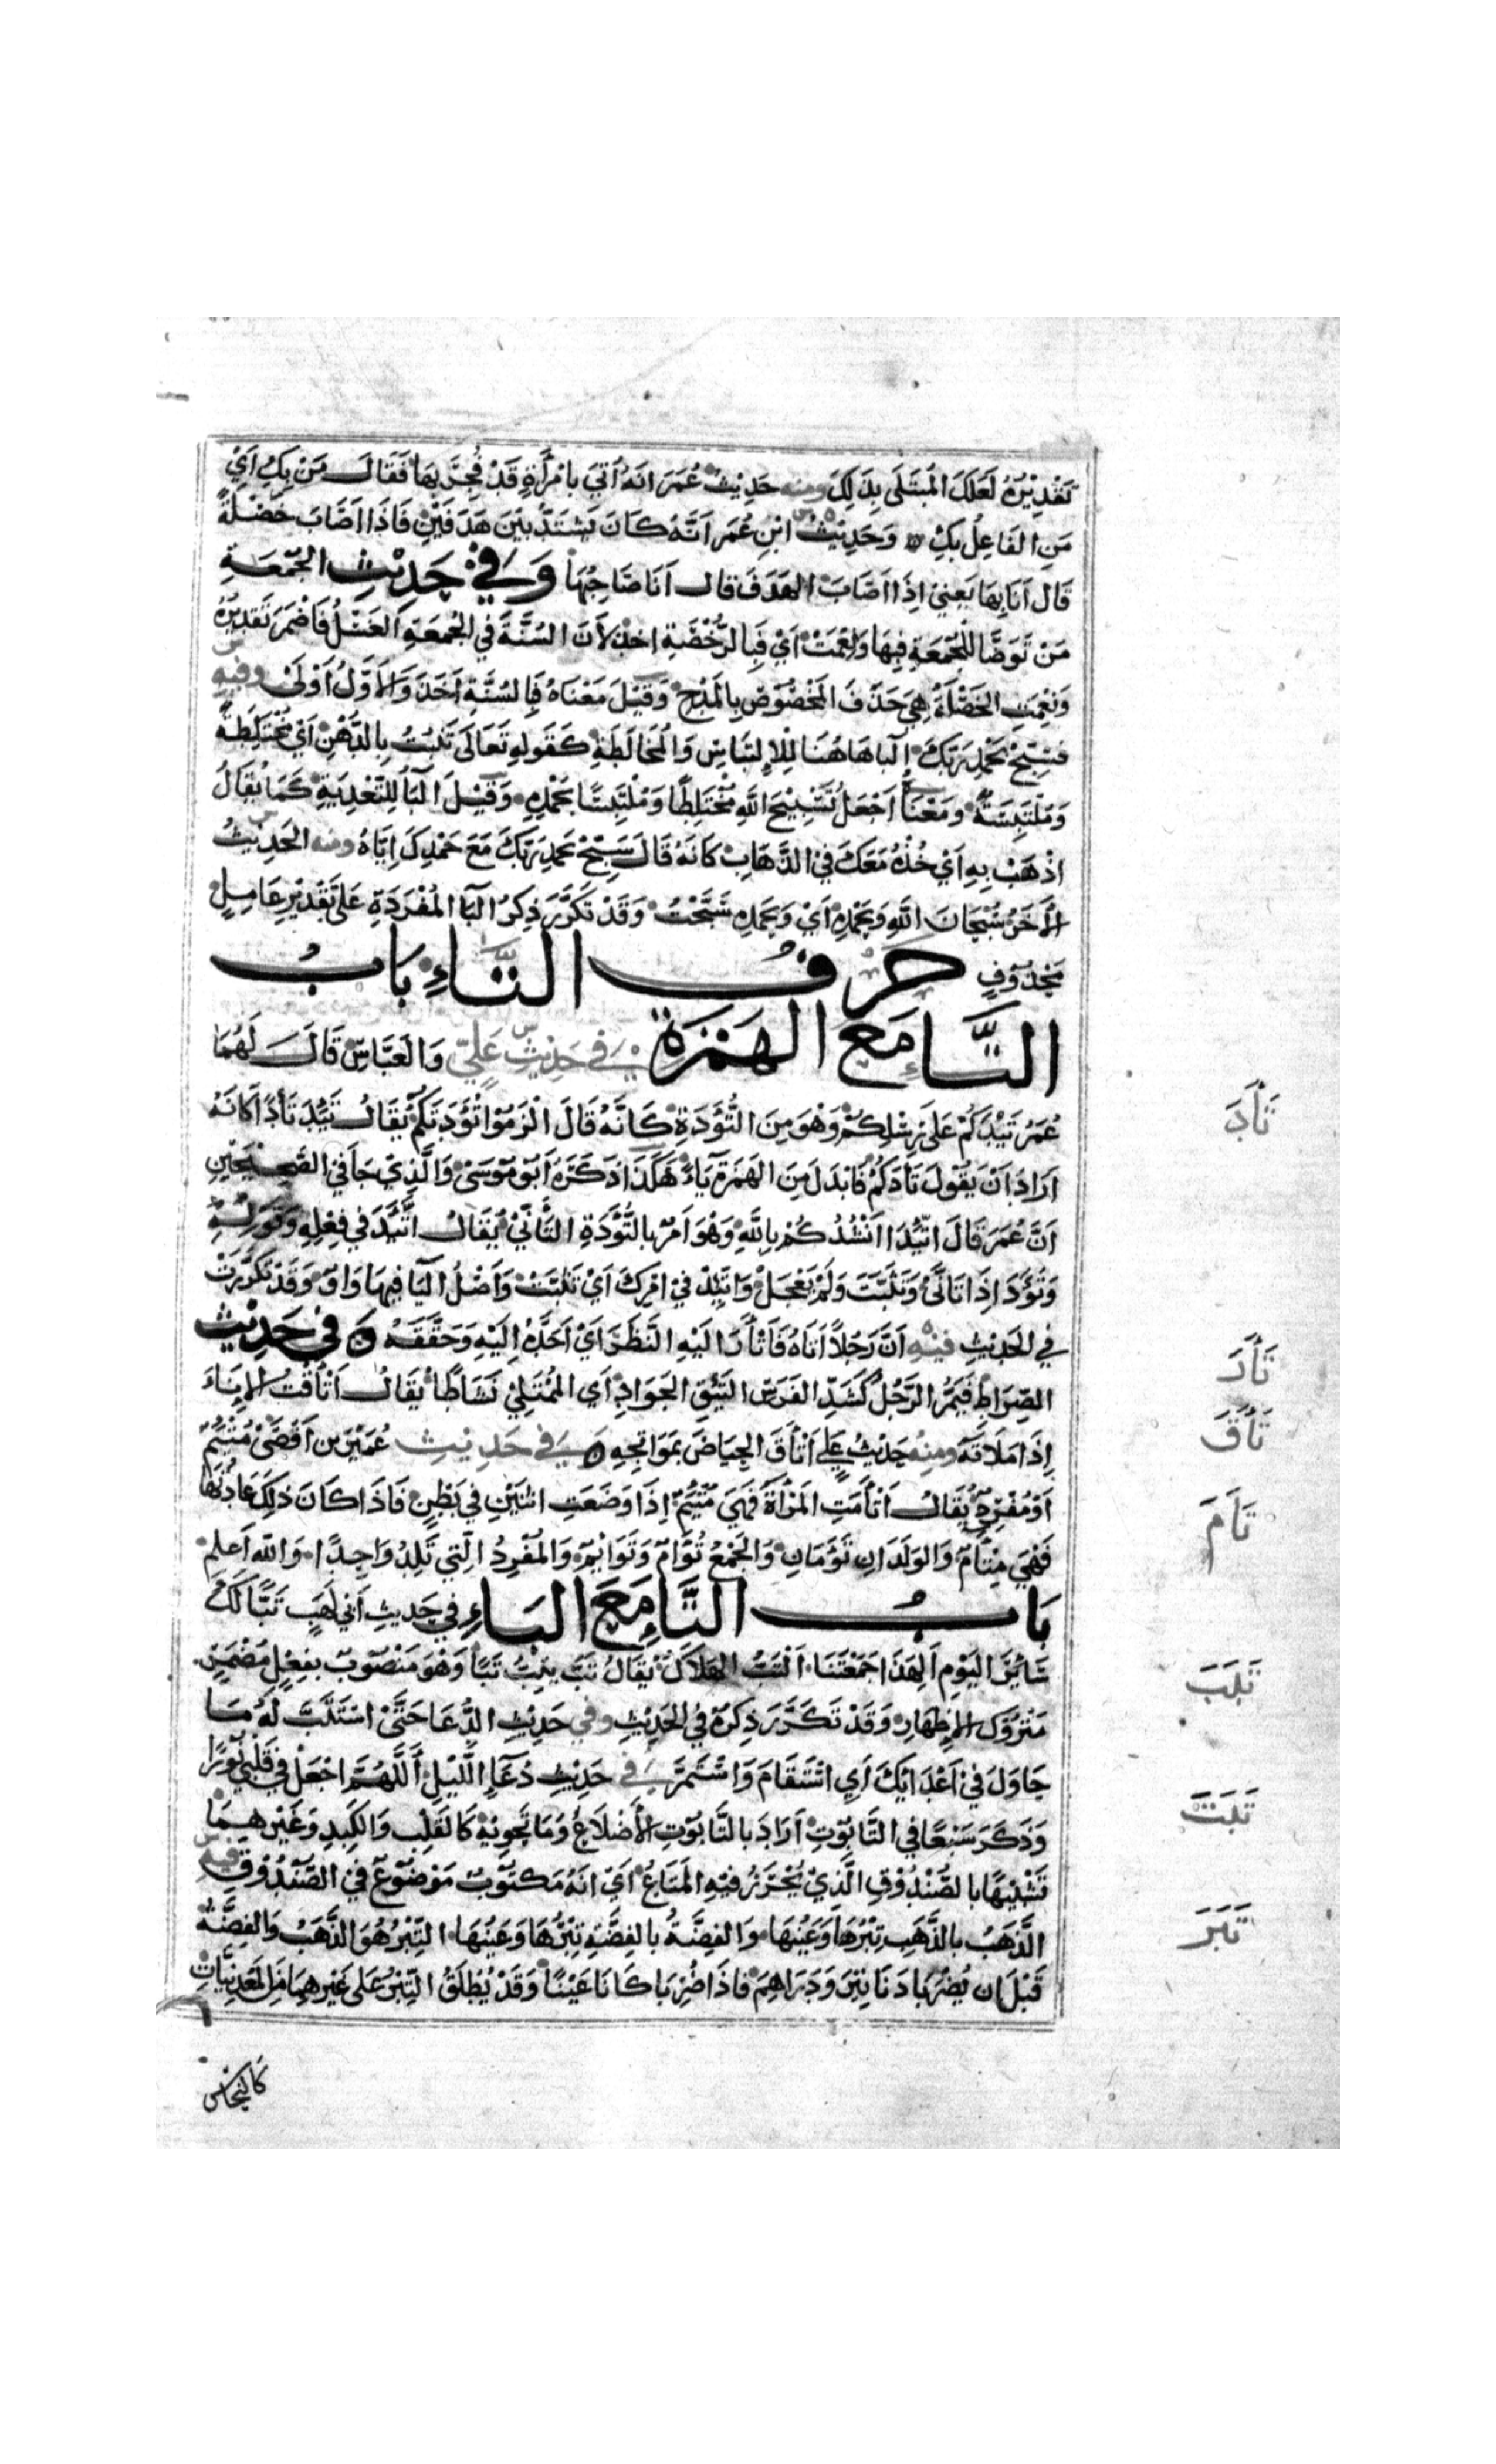 تَقْدِيْرُهُ لَعَلَّكَ المُبْتَلَى بِذَلِكَ ومنه حَدِيْثُ عُمَرَ انَهُ اُتِيَ بامْرَأَةٍ قَدْ فُجِرَ بِهَا فَقَالَ مَنْ بِكِ اَيْ
مَنِ الفَاعِلُ بِكِ وَحَدِيْثُ ابْنِ عُمَر اَنَّهُ كَانَ يَشْتَدُّ بَيْنَ هَدَفَيْنِ فَاذَا اصَابَ خَصْلَةً
قَال اَنَا بِهَا يَعنِيْ اِذَا اصَابَ الهَدَفَ قال اَنَا صَاحِبُهَا وَفِيْ حَدِيْثِ الجُمُعَةِ
مَنْ تَوَضَّا لِلْجُمُعَةِ فِبِهَا وَنِعْمَتْ اَيْ فَبِالرُّخْصَةِ اخذ لاَنَ السُنَّةَ فِي الجُمعَةِ الغَسْلُ فَاضْمَرَ تَقدِيْرُهُ
وَنِعْمَتِ الخَصْلَةُ هِيَ حَذَفَ المَخْصُوْصَ بِالمَدْحِ وَقِيْلَ مَعْنَاهُ فَبِالسُنَّةِ اَخَذَ وَالاَوَّلُ اَوْلَىْ وفيه
فَسَبِّحْ بحَمْدِ رَبِّكَ اِلبَاهَاهُنَا لِلاِلتِبَاسِ وَالمُخَالَطَةِ كَقَولِهِ تَعَالَى تَنْبُتُ بِالدُّهْنِ اَيْ مُخْتَلِطَةً
وَمُلْتَبِسَةً ومَعْنَاهُ اجْعَلْ تَسْبِيْحَ اللهِ مُخْتَلِطًا وَمُلْتَبِسًا بحَمْدِهِ وَقِيْلَ البَا لِلتَّعْدِيَةِ كَمَا يُقَالُ
اذْهَبْ بِهِ اَيْ خُذْهُ مَعَكَ فِي الذَّهَابِ كَانَهُ قَالَ سَبِّحْ بحَمدِ رَبِّكَ مَعَ حَمْدِكَ اِيَّاهُ ومنه الحَدِيْثُ
الاَخَرُ سُبْحَانَ اللهِ وَبِحَمْدِهِ اَيْ وَبِحَمدِهِ سَبَّحْتُ وَقَدْ تَكَرَّرَ ذِكرُ البَا المُفْرَدَةِ عَلَى تَقْدِيْرِ عَامِلٍ
مَحْذُوفٍ حَرْفُ التَّاءِ بَابُ
التَّاءِ مَعَ الهَمْزَةِ فِي حَدِيْثِ عَلِيّ وَالعَبَّاسِ قَالَ لَهُمَا
عُمَرُ تَيْدَكُمْ عَلَى رِسْلِكُمْ وَهْوَ مِنَ التُّؤَدَةِ كَاَنَّهُ قَالَ الْزَمُوْا تُؤَدَتَكُمْ يُقَالُ تَئِدَ تَأَدًا كَانَهُ
ارَادَ اَنْ يَقُوْلَ تَأدَكُمْ فَابْدَلَ مِنَ الهَمْزَة يَاءً هَكَذَا ذَكَرَهُ اَبُو مُوْسَى وَالَّذِيْ جَا فِي الصَّحِيْحَيْنِ
اَنَّ عُمَرَ قَالَ اتَّئِدَا اَنْشُدُكُمْ بِاللهِ وَهْوَ اَمْرٌ بِالتُّؤَدَةِ التَأَنِّيْ يُقَالُ اتَّئَدَ فِي فِعْلِهِ وَقَوْلِهِ
وَتَؤَدَ اِذَا تَانَّى وَتَثَبَّتَ وَلَمْ يَعْجَلْ وَاتَّئِدْ فِيْ امْرِكَ اَيْ تَثَبَّتْ وَاَصْلُ التَا فِيهَا وَاوٌ وَقَدْ تَكَرَّرَتْ
فِي الحَدِيْثِ فيْهِ اَنَّ رَجُلاً اَتَاهُ فَاَتْأَرَ اليْهِ النَّظَرَ اَيْ اَحَدَّهُ اِلَيْهِ وَحَقَّقَهُ وَفِيْ حَدِيْثِ
الصِّرَاطِ فَيَمُرُّ الرَّجُلُ كَشَدِّ الفَرَسِ التَّئِقِ الجَوَادِ اَي المُمْتَلِئِ نَشَاطًا يُقَالُ اَتْأَقْتُ الاِنَاءَ
اِذَا مَلَاتَهُ ومِنْهُ حَدِيْثُ عَلِي اَتْأَقَ الحِيَاضَ بمَوَاتِحِهِ وَفِيْ حَدِيْثِ عُمَيْرِ بن اَفْصَى مُتْئِمٌ
اَوْ مُفْرِدٌ يُقَالُ اَتْأَمَتِ المَرْاَةُ فَهِيَ مُتْئِمٌ اِذَا وَضَعَتِ اثْنَيْنِ فِي بَطْنٍ فَاذَا كَانَ ذلِكَ عَادَتَهَا
فَهْيَ مِتْأَمٌ وَالوَلَدَانِ تَوْءَمَانِ وَالجَمْعُ تُوْامٌ وَتَوَائِمُ وَالمُفْرِدُ الَّتِي تَلِدُ وَاحِدًا وَاللهُ اَعلم
بَابُ التَّاءِ مَعَ البَاءِ فِي حَدِيثِ اَبِي لَهَبٍ تَبًّا لَكَ
سَائِرَ اليَوْمِ اَلِهَذَا جَمَعْتَنَا اَلْتَبُّ الهَلاَكُ يُقَالُ تَبَّ يَتِبُّ تَبًّا وَهْوَ مَنْصُوْبٌ بِفِعْلٍ مُضْمَرٍ
مَتْرُوْكِ الاِظهَارِ وَقَدْ تَكَرَّرَ ذِكرُهُ فِي الحَدِيْثِ وفي حَدِيْثِ الدُّعَا حَتَّى اسْتَتَبَّ لَهُ مَا
حَاوَلَ فِيْ اَعْدَائِكَ اَيِ اسْتَقَامَ وَاسْتَمَرَّ فِي حَدِيْثِ دُعَاءِ اللَّيْلِ اَللَّهُمَّ اجْعَلْ فِي قَلْبِي نُوْرًا
وَذَكَرَ سَبْعًا فِي التَّابُوْتِ اَرَادَ بالتَّابُوْتِ الاَضْلَاعَ وَمَا تَحْوِيْهِ كَالقَلْبِ وَالكَبِدِ وَغَيْرِهِمَا
تَشْبِيْهًا بالصُّنْدُوْقِ الَّذِيْ يُحْرَزُ فيْهِ المَتَاعُ اَيْ انَهُ مَكتُوْبٌ مَوْضُوْعٌ فِي الصُّنْدُوْقِ فيه
الذَّهَبُ بالذَّهَبِ تِبْرُهَا وَعَيْنُهَا وَالفِضَّةُ بالفِضَّةِ تِبْرُهَا وَعَيْنُهَا التِّبْرُ هُوَ الذَّهَبُ وَالفِضَّةُ
قَبْلَ ان يُضْرَبَا دَنَانِيْرَ وَدَرَاهِمَ فاذَا ضُرِبَا كَانَا عَيْنًا وَقَدْ يُطْلَقُ التِّبْرُ عَلَى غَيْرِهِمَا مِنَ المَعْدِنِيَّاتِ
كَالنُّحَاسِ
تَأَدَ
تَأَرَ
تَأَقَ
تَأَمَ
تَبَبَ
تَبَتَ
تَبَرَ